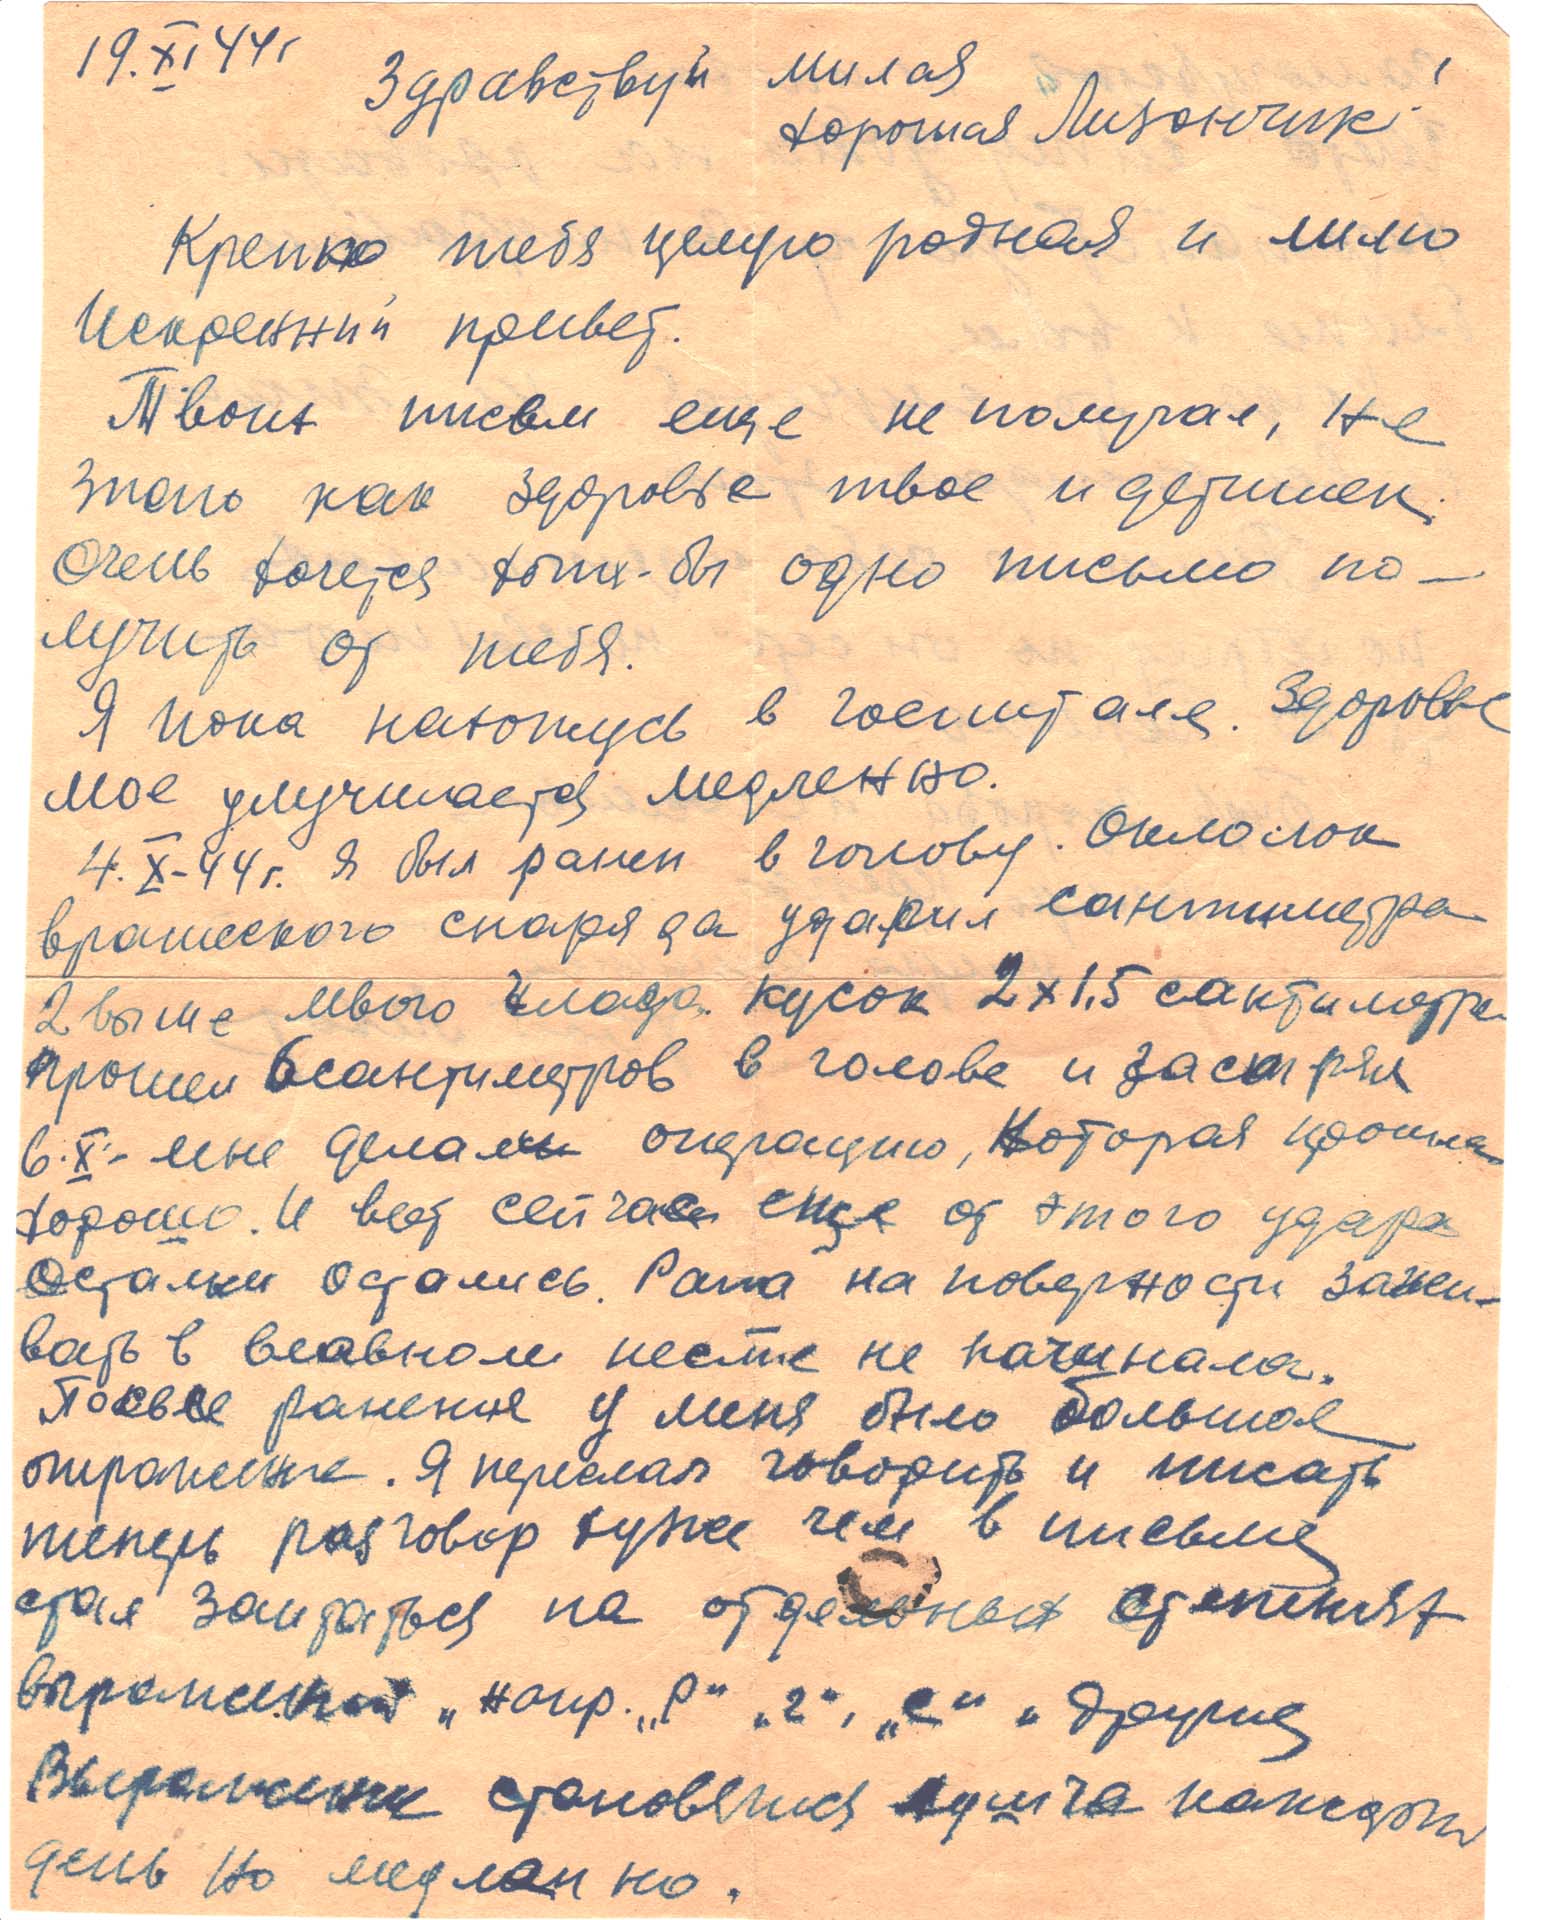 19.XI 44г
Здравствуй милая
хорошая Лизончик!
Крепко тебя целую родная и шлю
Искренний привет.
Твоих писем еще не получал, не
знаю как здоровье твое и детишек.
Очень хочется хотя-бы одно письмо по-
лучить от тебя.
Я пока нахожусь в госпитале. Здоровье
мое улучшается медленно.
4.X-44г. я был ранен в голову. Осколок
вражеского снаряда ударил сантиметра
2 выше моего глаза. Кусок 2х1,5 сантиметра
прошел 6 сантиметров в голове и застрял
6.X- мне делали операцию, которая прошла
хорошо. И вот сейчас еще от этого удара
остались. Рана на поверхности зажи-
вать в главном месте не начинала.
После ранения у меня было большое
отражение. Я перестал говорить и писать
теперь разговор хуже чем в письме
стал заикаться на отдельных
выражений „напр. „р" „г", „с" и другие
Выражение становятся лучше каждый
день но медленно.